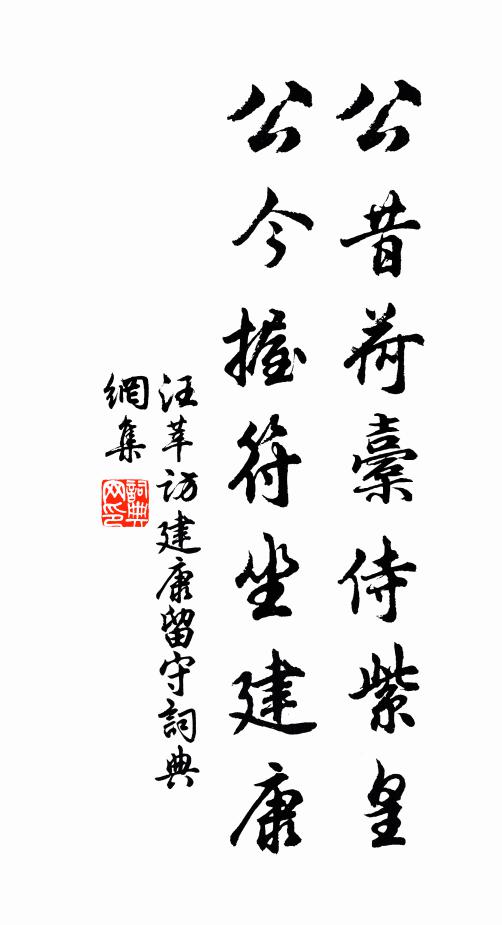 公昔荷橐侍紫皇
公今握符坐建康
汪莘訪建康留守詞典
網集
詞典網印